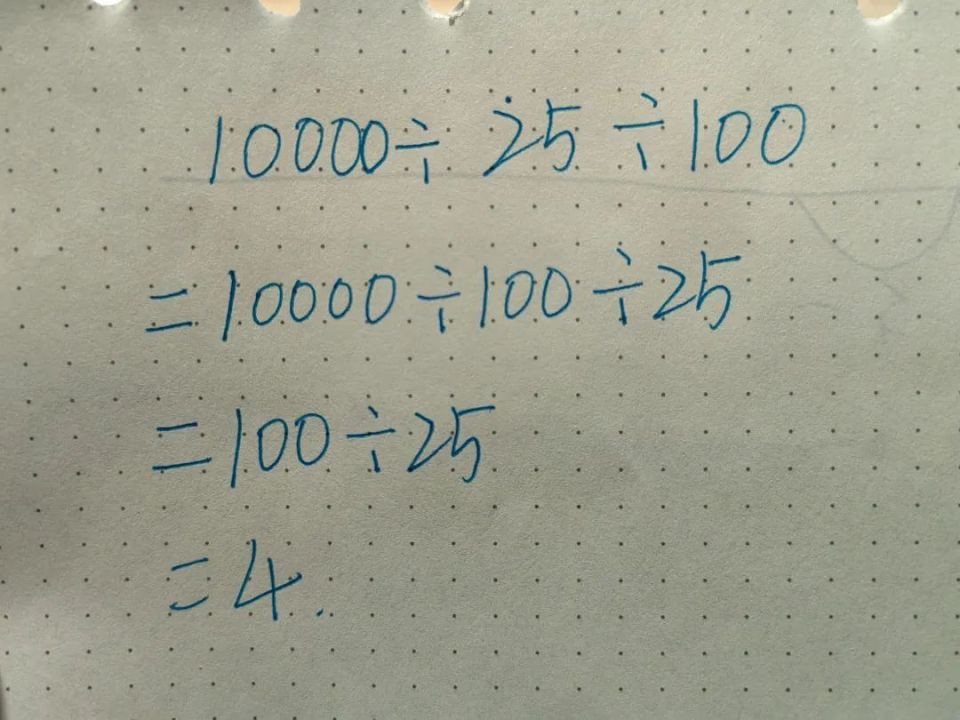 10000÷25÷100
=10000÷100÷25
=100÷25
=4.